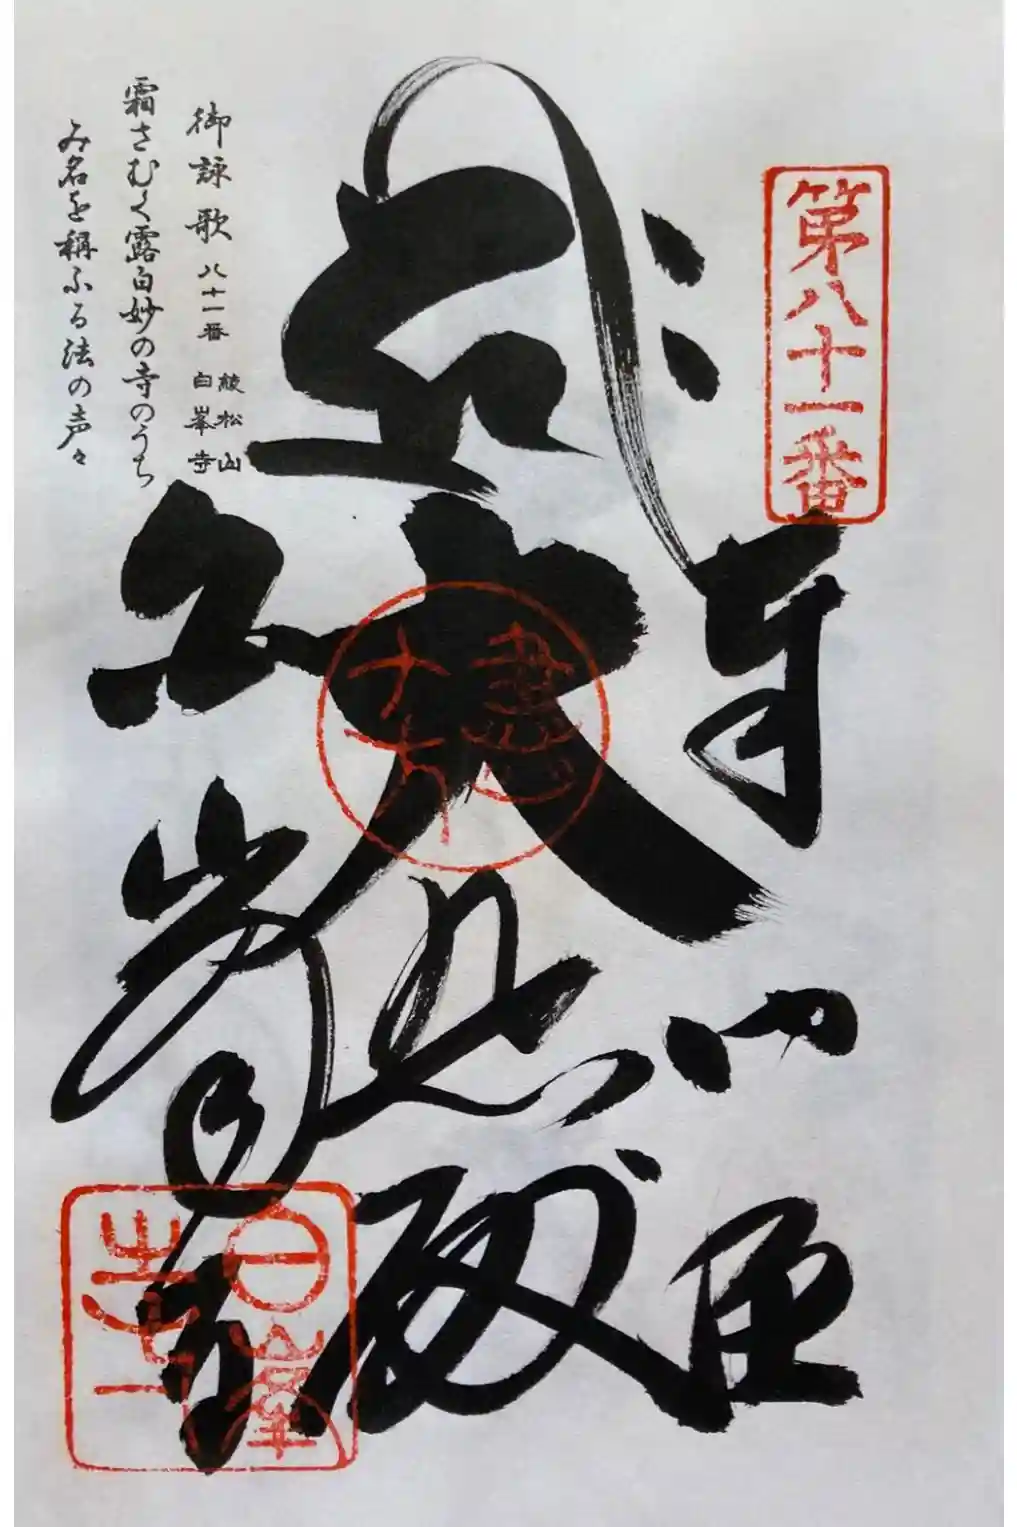 第八十一番
奉
大悲殿
白峯寺
御詠歌 八十一番 綾松山 白峯寺
霜さむく露白妙の寺のうち
み名を称ふる法の声々
白峯寺